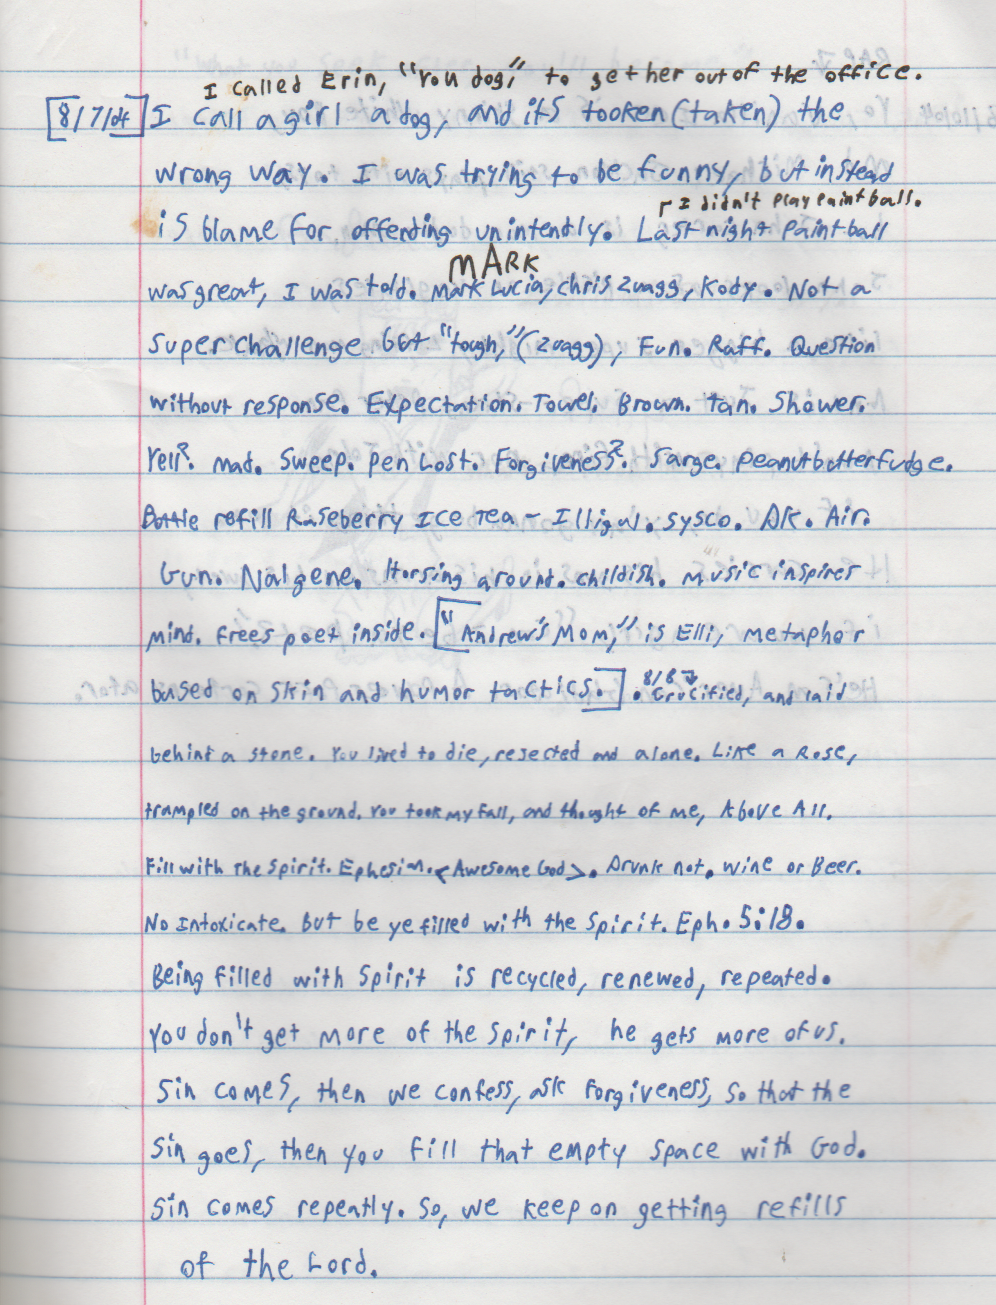 I called Erin, "You dog," to get her out of the office.
8/7/04 I call a girl a dog, and it's tooken (taken) the
wrong way. I was trying to be funny, but instead
I didn't play paintball.
is blame for offending unintendly. Last night Paintball
MARK
was great, I was told. Mark Lucia, Chris Zuagg, Kody. Not a
super challenge but "tough," (Zuagg), Fun. Raff. Question
without response. Expectation. Towel. Brown. tan. Shower.
Yell?. mad. Sweep. pen Lost. Forgiveness?. Sarge. Peanutbutterfudge.
Bottle refill Raseberry Ice Tea - Illigul. Sysco. AK. Air.
Gun. Nalgene. Horsing around. childish. music inspires
mind. frees poet inside. ["Andrew's Mom," is Elli, metaphor
based on skin and humor tactics.]. 8/8 Crucified, and laid
behint a stone. You lived to die, rejected and alone. Like a Rose,
trampled on the ground. You took my fall, and thought of me, Above All.
Fill with the Spirit. Ephesian. <Awesome God>. Drunk not. wine or Beer.
No Intoxicate. But be ye filled with the Spirit. Eph. 5:18.
Being filled with Spirit is recycled, renewed, repeated.
You don't get more of the spirit, he gets more of us.
Sin comes, then we confess, ask forgiveness, so that the
sin goes, then you fill that empty space with God.
Sin comes repeatly. So, we keep on getting refills
of the Lord.